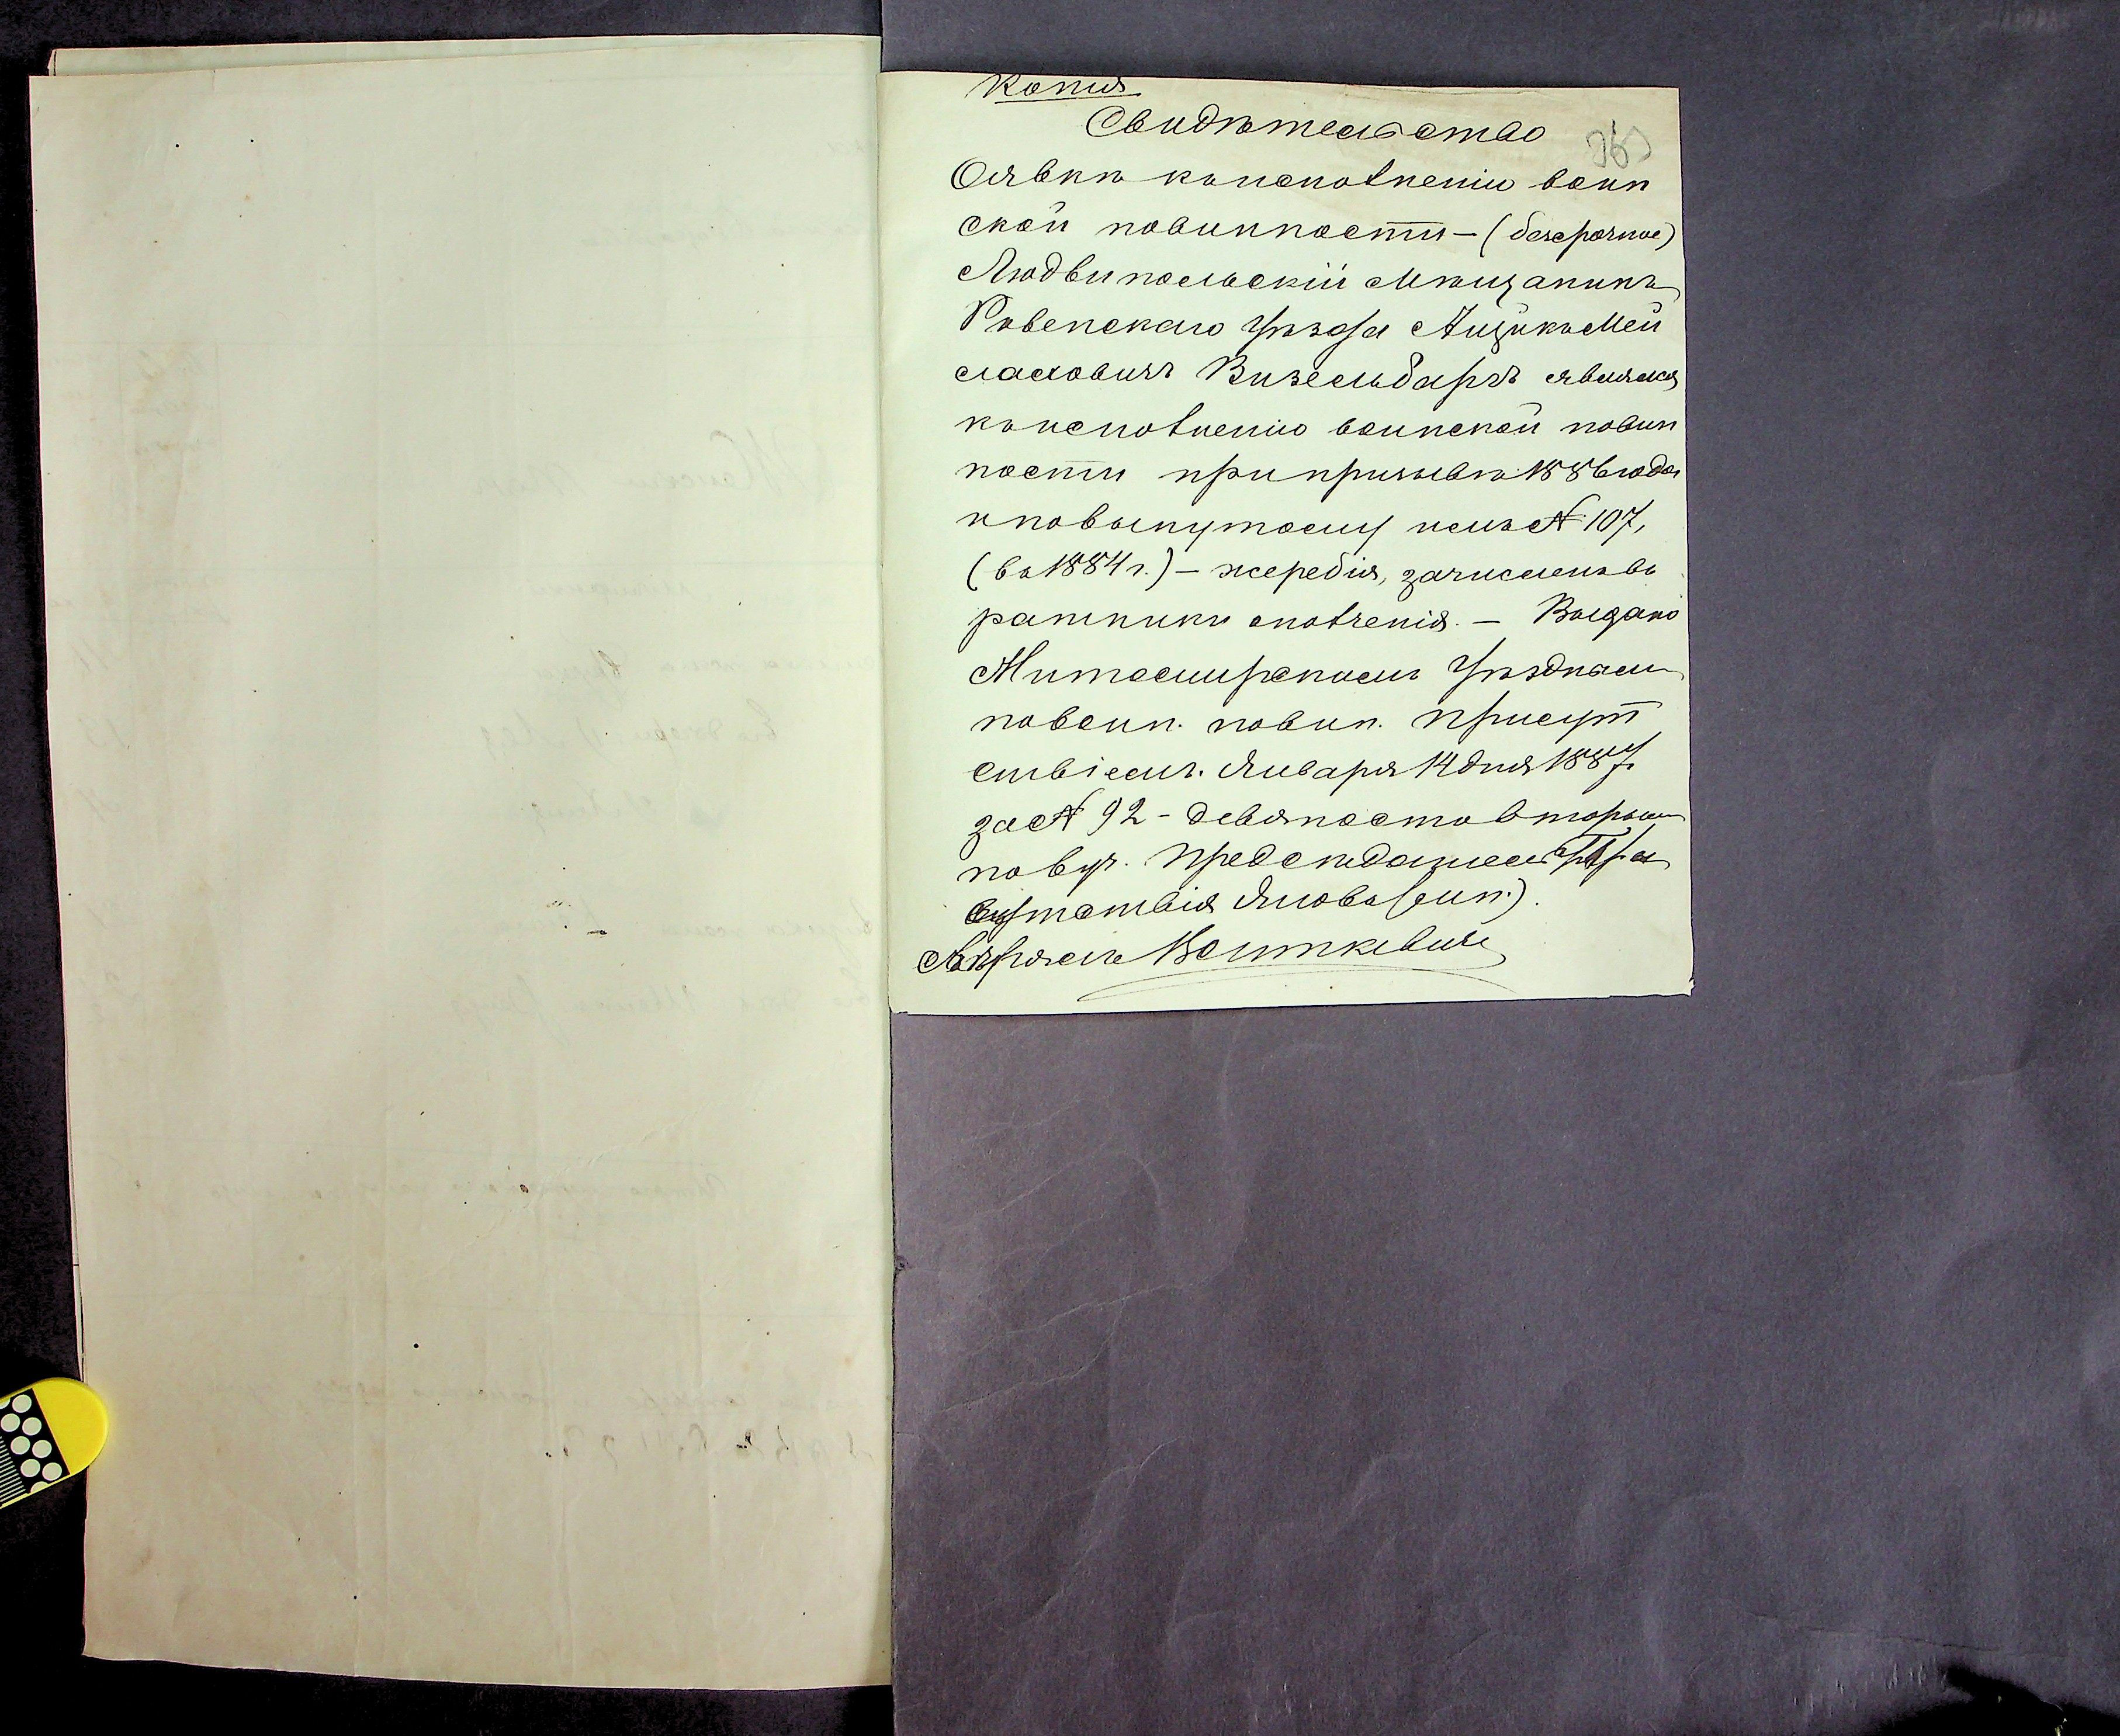 Копия
Свидѣтельство
Оявкѣ къисполненію воин
ской повинности — (безсрочное)
Людвипольскій Мѣщанинъ
Ровенскаго Уѣзда Ицикъ Мей
лаховичъ Визельбергъ явился
къисполненію воинской повин
ности при призывѣ 1886 года
и повынутому имъ № 107,
(въ 1884 г.) — жеребія, зачисленъ въ
ратники ополченія. — Выдано
Житомирскимъ Уѣзднымъ
повоин. повин. Присут
ствіемъ. Января 14 дня 1887 г.
за № 92 - девяносто вторымъ
Предсѣдатель
сутствія
Вѣрно: Войткевичъ